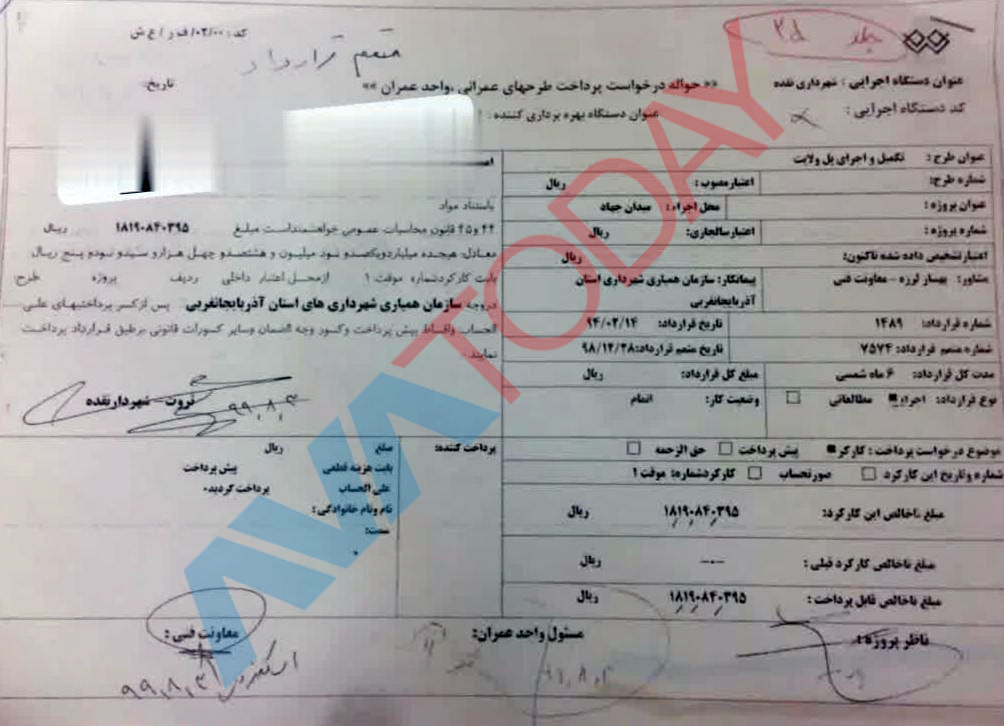 کد: ۰۲/۰۰/ف ر/ع ش
جلد ۲۵
متمم قرارداد
عنوان دستگاه اجرایی : شهرداری نقده
«« حواله درخواست پرداخت طرحهای عمرانی ،واحد عمران »»
تاریخ:
کد دستگاه اجرایی :
عنوان دستگاه بهره برداری کننده :
عنوان طرح : تکمیل و اجرای پل ولایت
شماره طرح:
اعتبار مصوب : ریال
عنوان پروژه :
محل اجراء : میدان جهاد
شماره پروژه :
اعتبار سالجاری: ریال
اعتبار تشخیص داده شده تاکنون: ریال
مشاور: بهساز لرزه – معاونت فنی
پیمانکار: سازمان همیاری شهرداری استان آذربایجانغربی
شماره قرارداد: ۱۴۸۹
تاریخ قرارداد: ۹۴/۰۲/۱۴
شماره متمم قرارداد: ۷۵۷۴
تاریخ متمم قرارداد:۹۸/۱۲/۲۸
مدت کل قرارداد: ۶ ماه شمسی
مبلغ کل قرارداد: ریال
نوع قرارداد: اجرا■ مطالعاتی □
وضعیت کار: اتمام
موضوع درخواست پرداخت : کارکرد■ پیش پرداخت □ حق الزحمه □
شماره وتاریخ این کارکرد □ صورتحساب □ کارکردشماره: موقت ۱
مبلغ ناخالص این کارکرد: ۱۸۱۹۰۸۴۰۳۹۵ ریال
مبلغ ناخالص کارکرد قبلی : --- ریال
مبلغ ناخالص قابل پرداخت : ۱۸۱۹۰۸۴۰۳۹۵ ریال
باستناد مواد
۴۴ و۴۵ قانون محاسبات عمومی خواهشمنداست مبلغ ۱۸۱۹۰۸۴۰۳۹۵ ریال
معادل: هیجده میلیاردویکصدو نود میلیون و هشتصدو چهل هزارو سیصدو نودو پنج ریال
بابت کارکردشماره موقت ۱ ازمحل اعتبار داخلی ردیف پروژه طرح
دروجه سازمان همیاری شهرداری های استان آذربایجانغربی پس ازکسر پرداختهای علی
الحساب واقساط پیش پرداخت وکسور وجه الضمان وسایر کسورات قانونی برطبق قرارداد پرداخت
نمایند .
ثروت - شهردارنقده
۹۹,۸,۳
پرداخت کننده:
مبلغ ریال
بابت هزینه قطعی پیش پرداخت
علی الحساب پرداخت گردید.
نام ونام خانوادگی :
سمت:
ناظر پروژه :
مسئول واحد عمران:
معاونت فنی :
۹۹,۸,۳
AVATODAY